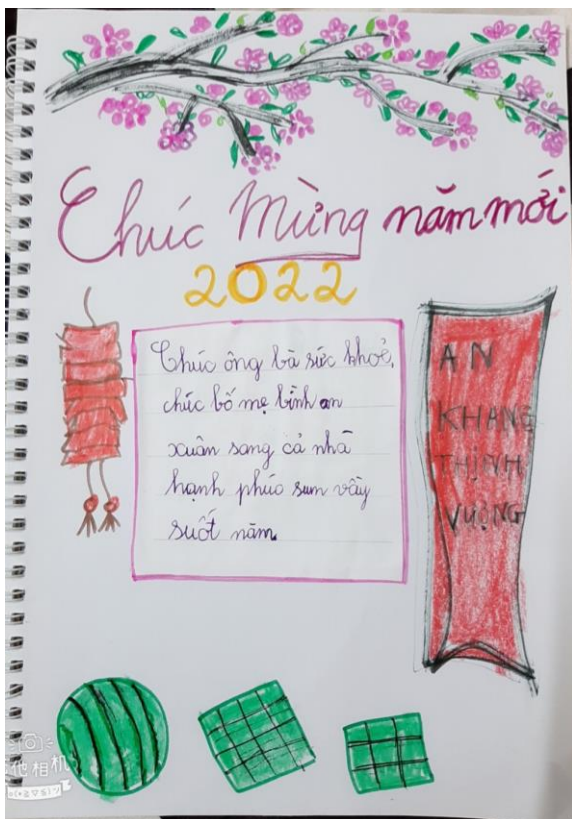 Chúc Mừng năm mới
2022
Chúc ông bà sức khoẻ,
chúc bố mẹ bình an
xuân sang cả nhà
hạnh phúc sum vầy
suốt năm.
AN
KHANG
THỊNH
VƯỢNG
他相机